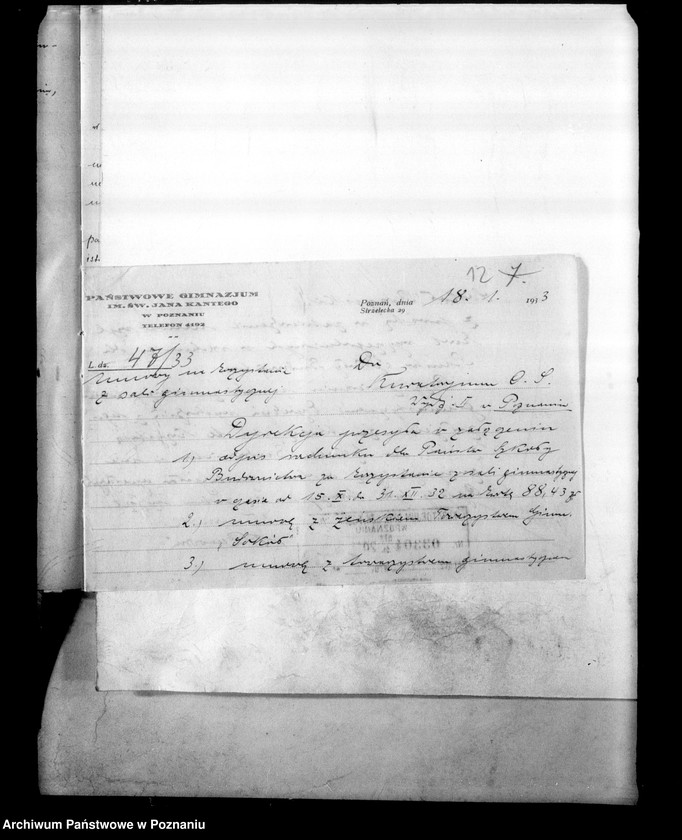 12 7.
PAŃSTWOWE GIMNAZJUM
IM. ŚW. JANA KANTEGO
W POZNANIU
TELEFON 4192
Poznań, dnia 18. 1. 1933
Strzelecka 29
L. dz. 47/33
Umowy na korzystanie
z sali gimnastycznej
Do
Kuratorjum O. S.
Wydz. II w Poznaniu
Dyrekcja przesyła w załączeniu
1.) odpis rachunku dla Państw. Szkoły
Budownictwa za korzystanie z sali gimnastycznej
w czasie od 15. X. do 31. XII. 32 na kwotę 88,43 zł
2.) umowę z żeńskiem Towarzystwem Gimn.
"Sokół"
3.) umowę z towarzystwem gimnastycznem
03304
Archiwum Państwowe w Poznaniu